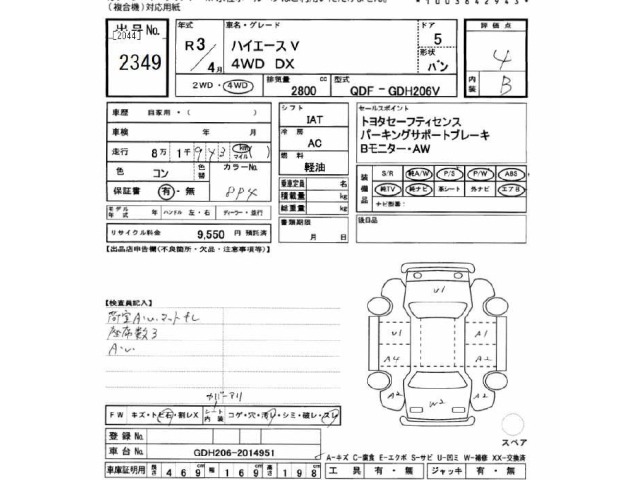 (複合機)対応用紙
出品No.
[2044]
2349
年式
R3/4月
車名・グレード
ハイエースV
4WD DX
ドア
5
形状
バン
評価点
4
内装
B
2WD・4WD
排気量
2800 cc
型式
QDF - GDH206V
車歴 自家用・( )
車検 年 月
走行 8万1千943 km マイル ( )
色 コン
色替
カラーNo.
8P4
保証書 有・無
モデル年式 年
ハンドル 左・右
ディーラー・並行
リサイクル料金 9,550 円 預託済
シフト
IAT
冷房
AC
燃料
軽油
乗車定員 名
積載量 kg
総重量 kg
書類期限
月 日
セールスポイント
トヨタセーフティセンス
パーキングサポートブレーキ
Bモニター・AW
装備品
S/R 純A/W P/S P/W ABS
純TV 純ナビ 革シート 外ナビ エアB
ナビ型番:
後日品
【出品店申告欄(不良箇所・欠品・注意事項等)】
【検査員記入】
荷室A・U、マットナし
座席数3
A・U
カバーアリ
U1
U1 A2
A4 A2
A2 W2 A2
FW キズ・トビ石・割レX
シート内装 コゲ・穴・汚レ・シミ・破レ・スレ
登録No.
車台No. GDH206-2014951
スペア
A-キズ C-腐食 E-エクボ S-サビ U-凹ミ W-補修 XX-交換済
車庫証明用 長さ 469cm 幅 169cm 高さ 198cm
工具 有・無 ジャッキ 有・無